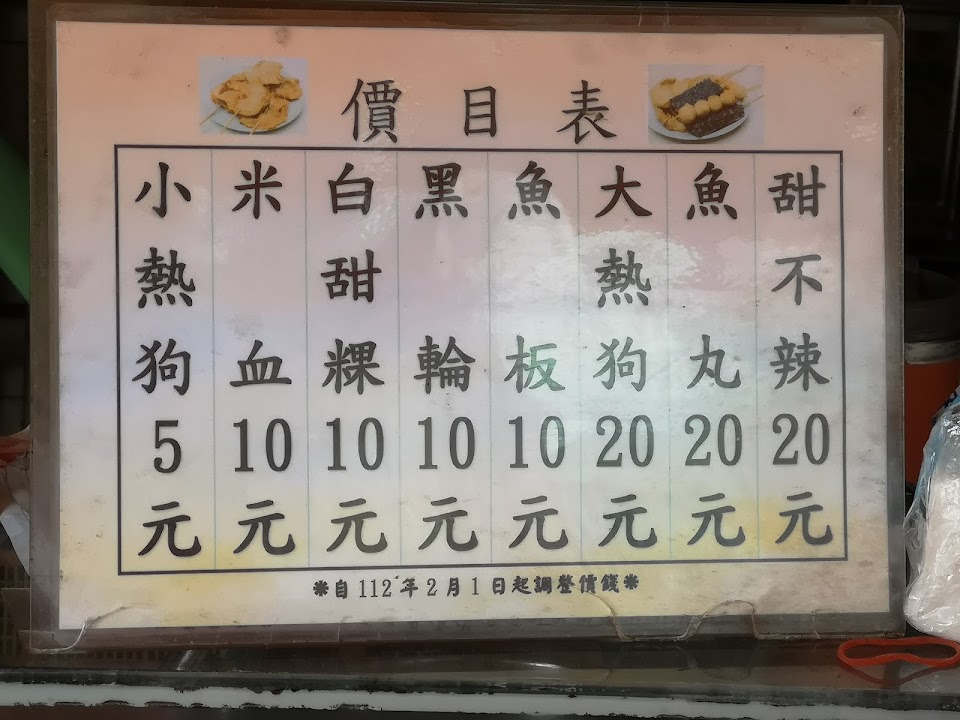 價目表
甜不辣20元
魚丸20元
大熱狗20元
魚板10元
黑輪10元
白甜粿10元
米血10元
小熱狗5元
※自112年2月1日起調整價錢※